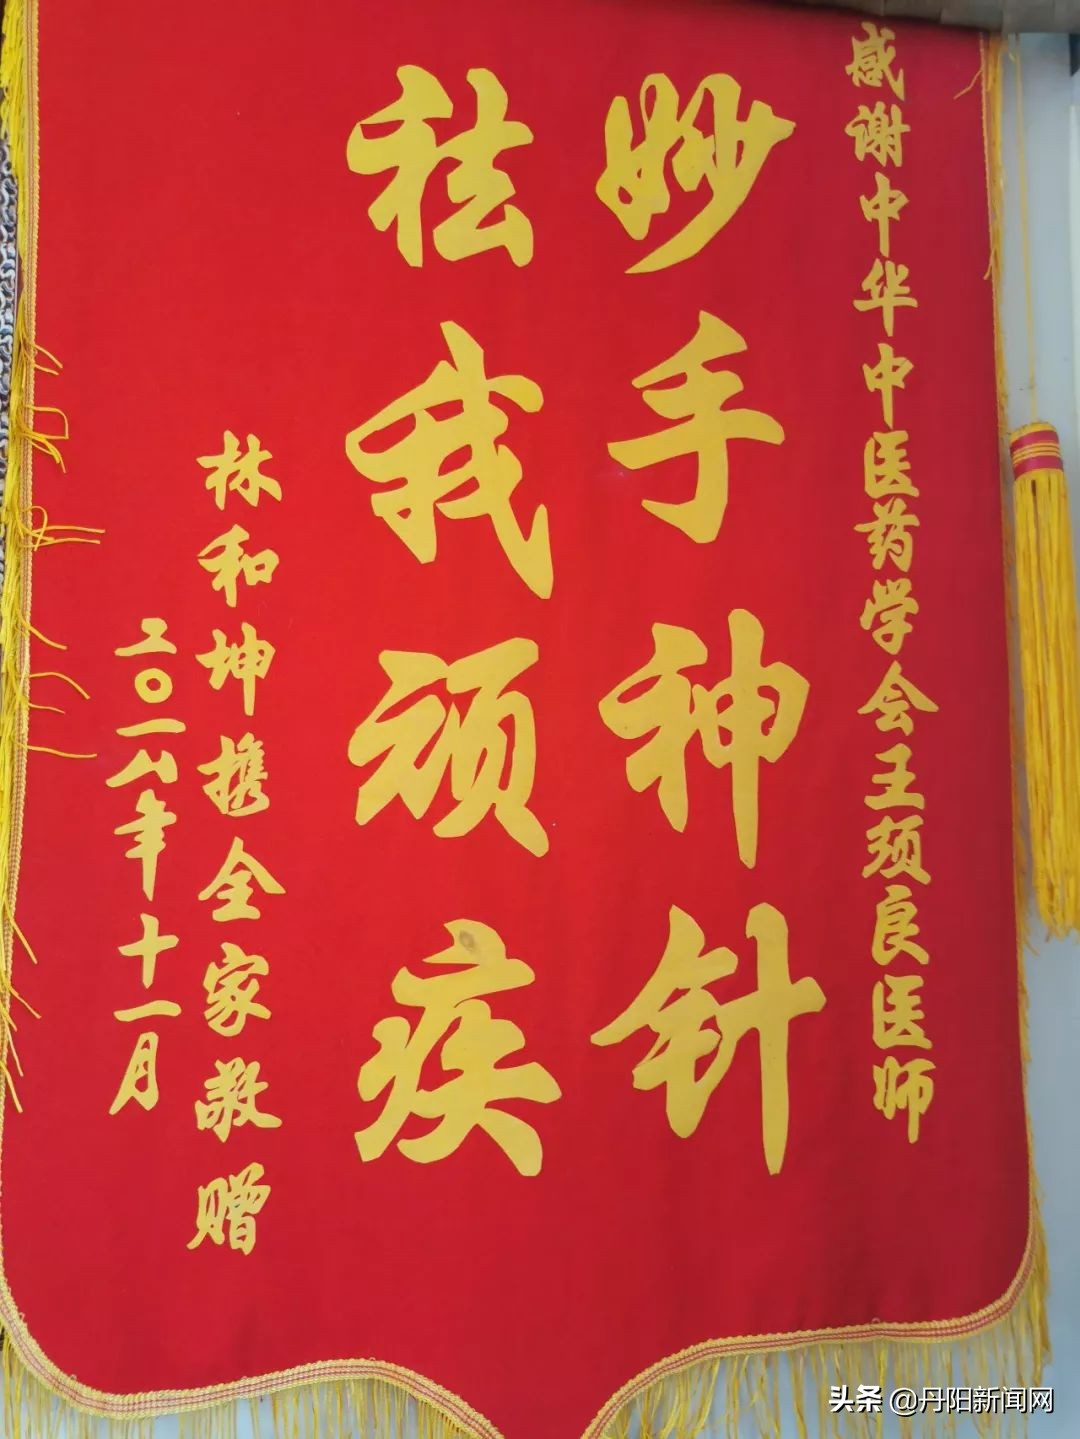 感谢中华中医药学会王颏良医师
妙手神针
祛我顽疾
林和坤携全家敬赠
二〇一八年十一月
头条 @丹阳新闻网